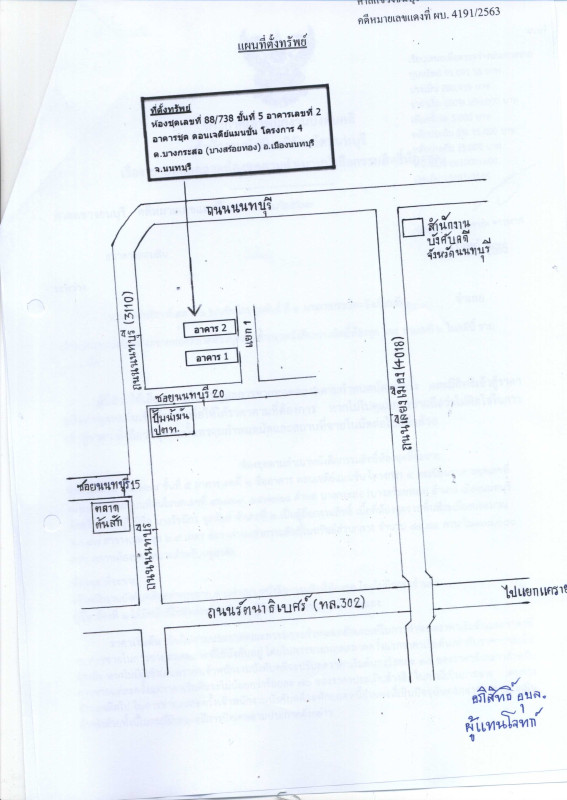 คดีหมายเลขแดงที่ ผบ. 4191/2563
แผนที่ตั้งทรัพย์
ที่ตั้งทรัพย์
ห้องชุดเลขที่ 88/738 ชั้นที่ 5 อาคารเลขที่ 2
อาคารชุด ดอนเจดีย์แมนชั่น โครงการ 4
ต.บางกระสอ (บางสร้อยทอง) อ.เมืองนนทบุรี
จ.นนทบุรี
ถนนนนทบุรี
สำนักงาน
บังคับคดี
จังหวัดนนทบุรี
ถนนนนทบุรี (3110)
อาคาร 2
แยก 1
อาคาร 1
ถนนเลี่ยงเมือง (4018)
ซอยนนทบุรี 20
ปั๊มน้ำมัน
ปตท.
ซอยนนทบุรี 15
ตลาด
ต้นสัก
ถนนนนทบุรี
ถนนรัตนาธิเบศร์ (ทล.302)
ไปแยกแคราย
อภิสิทธิ์ อุบล.
ผู้แทนโจทก์